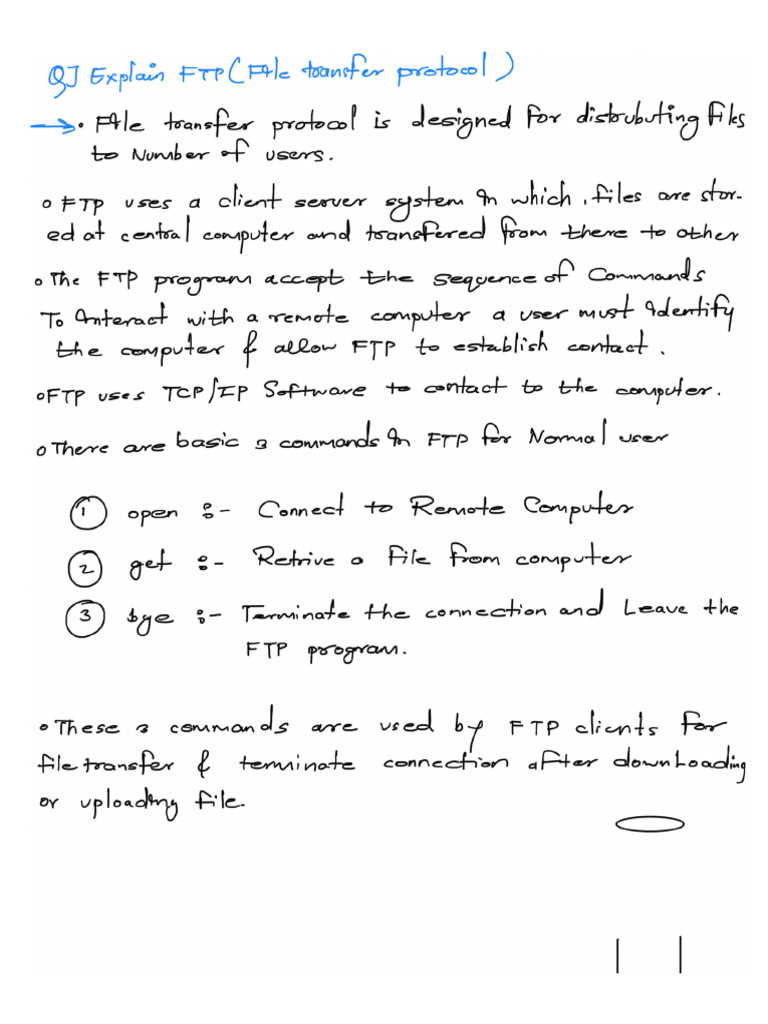 Q] Explain FTP (File transfer protocol)
→ • File transfer protocol is designed for distrubuting files
to Number of users.
o FTP uses a client server system in which, files are stor-
ed at central computer and transfered from there to other
o The FTP program accept the sequence of Commands
To Interact with a remote computer a user must Identify
the computer & allow FTP to establish contact.
o FTP uses TCP/IP Software to contact to the computer.
o There are basic 3 commands in FTP for Normal user
1 open :- Connect to Remote Computer
2 get :- Retrive a file from computer
3 bye :- Terminate the connection and Leave the
FTP program.
• These 3 commands are used by FTP clients for
file transfer & terminate connection after downloading
or uploading file.